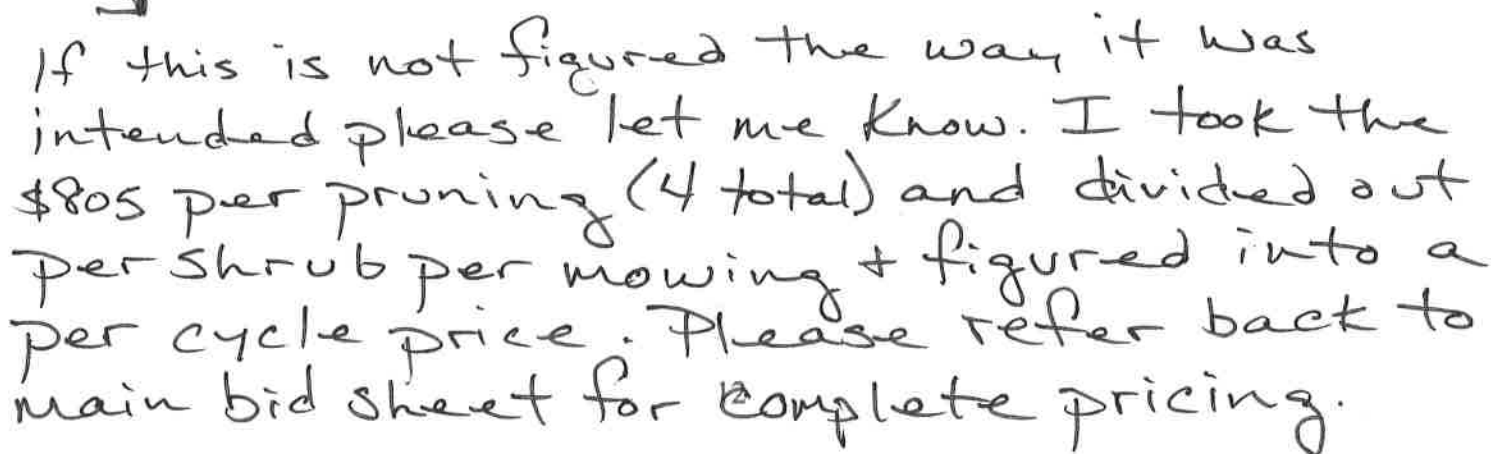 If this is not figured the way it was
intended please let me know. I took the
$805 per pruning (4 total) and divided out
per shrub per mowing + figured into a
per cycle price. Please refer back to
main bid sheet for complete pricing.